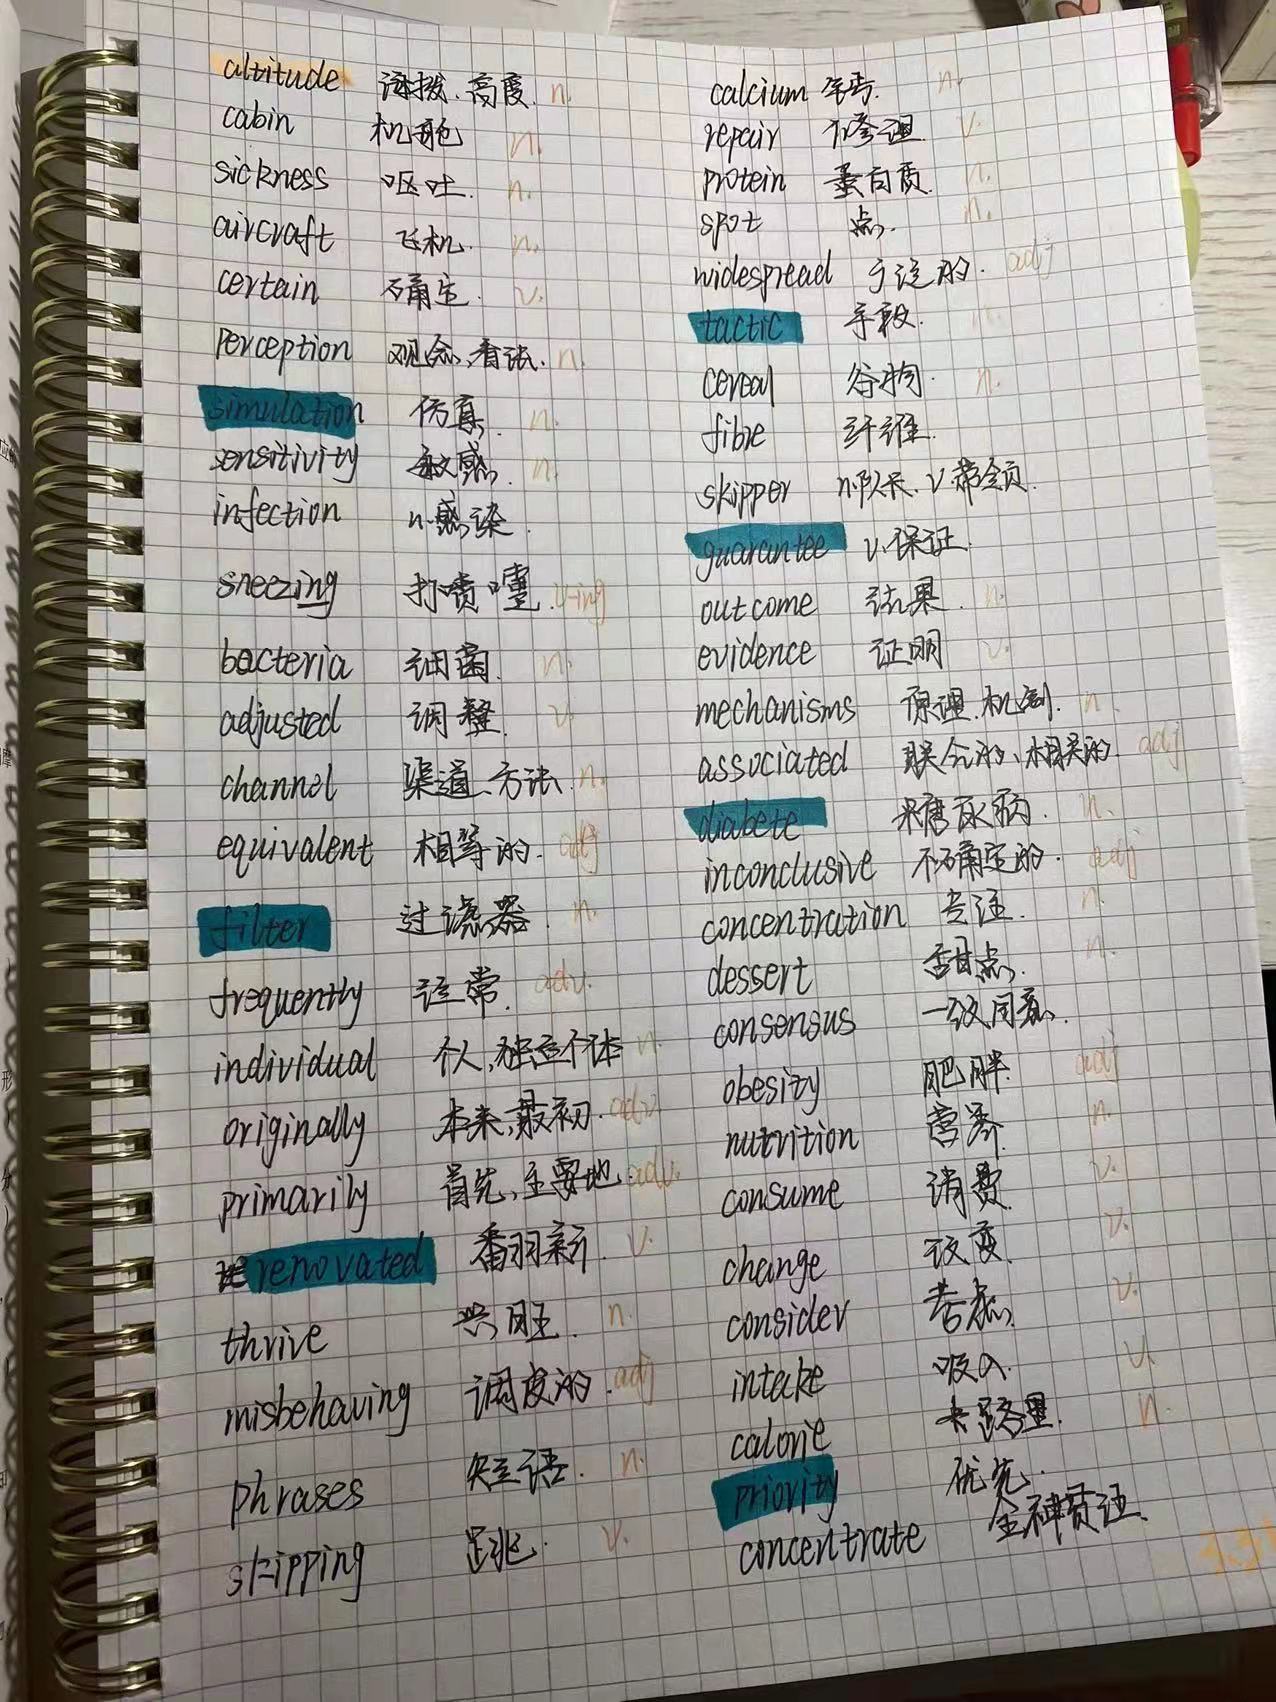 altitude 海拔、高度. n.
cabin 机舱 n.
sickness 呕吐. n.
aircraft 飞机. n.
certain 确定. v.
perception 观念,看法. n.
simulation 仿真. n.
sensitivity 敏感. n.
infection n.感染.
sneezing 打喷嚏. v-ing
bacteria 细菌. n.
adjusted 调整 v.
channel 渠道、方法. n.
equivalent 相等的. adj
filter 过滤器 n.
frequently 经常. adv.
individual 个人,独立个体 n.
originally 本来,最初. adv.
primarily 首先,主要地. adv.
renovated 翻新. v.
thrive 兴旺. n.
misbehaving 调皮的. adj
phrases 短语. n.
skipping 跳. v.
calcium 钙. n.
repair 修理. v.
protein 蛋白质. n.
spot 点. n.
widespread 广泛的. adj
tactic 手段. n.
cereal 谷物. n.
fibre 纤维.
skipper n.队长、v 带领.
guarantee v.保证.
outcome 结果. n.
evidence 证明 v.
mechanisms 原理、机制. n.
associated 联合的、相关的. adj
diabete 糖尿病. n.
inconclusive 不确定的. adj
concentration 专注. n.
dessert 甜点. n.
consensus 一致同意.
obesity 肥胖. adj
nutrition 营养. n.
consume 消费. v.
change 改变. v.
consider 考虑. v.
intake 吸入. v.
calorie 卡路里. n.
priority 优先.
concentrate 全神贯注.